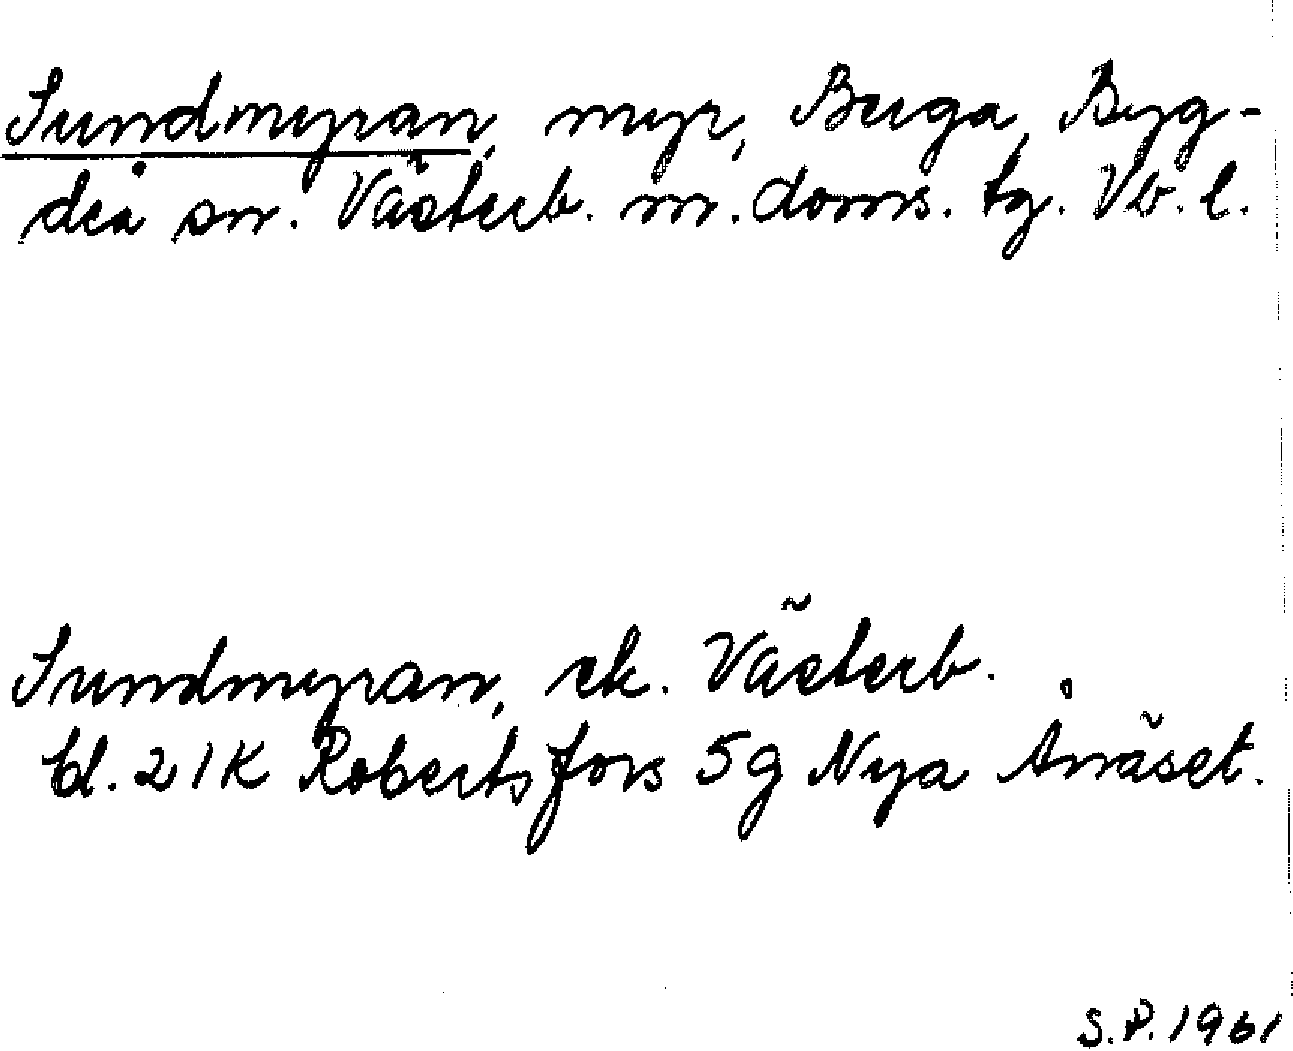 Sundmyran, myr, Berga, Byg-
deå sn. Västerb. m. doms. tg. Vb. l.
Sundmyran, ek. Västerb.
bl. 21K Robertsfors 5g Nya Ånäset.
S.P. 1961